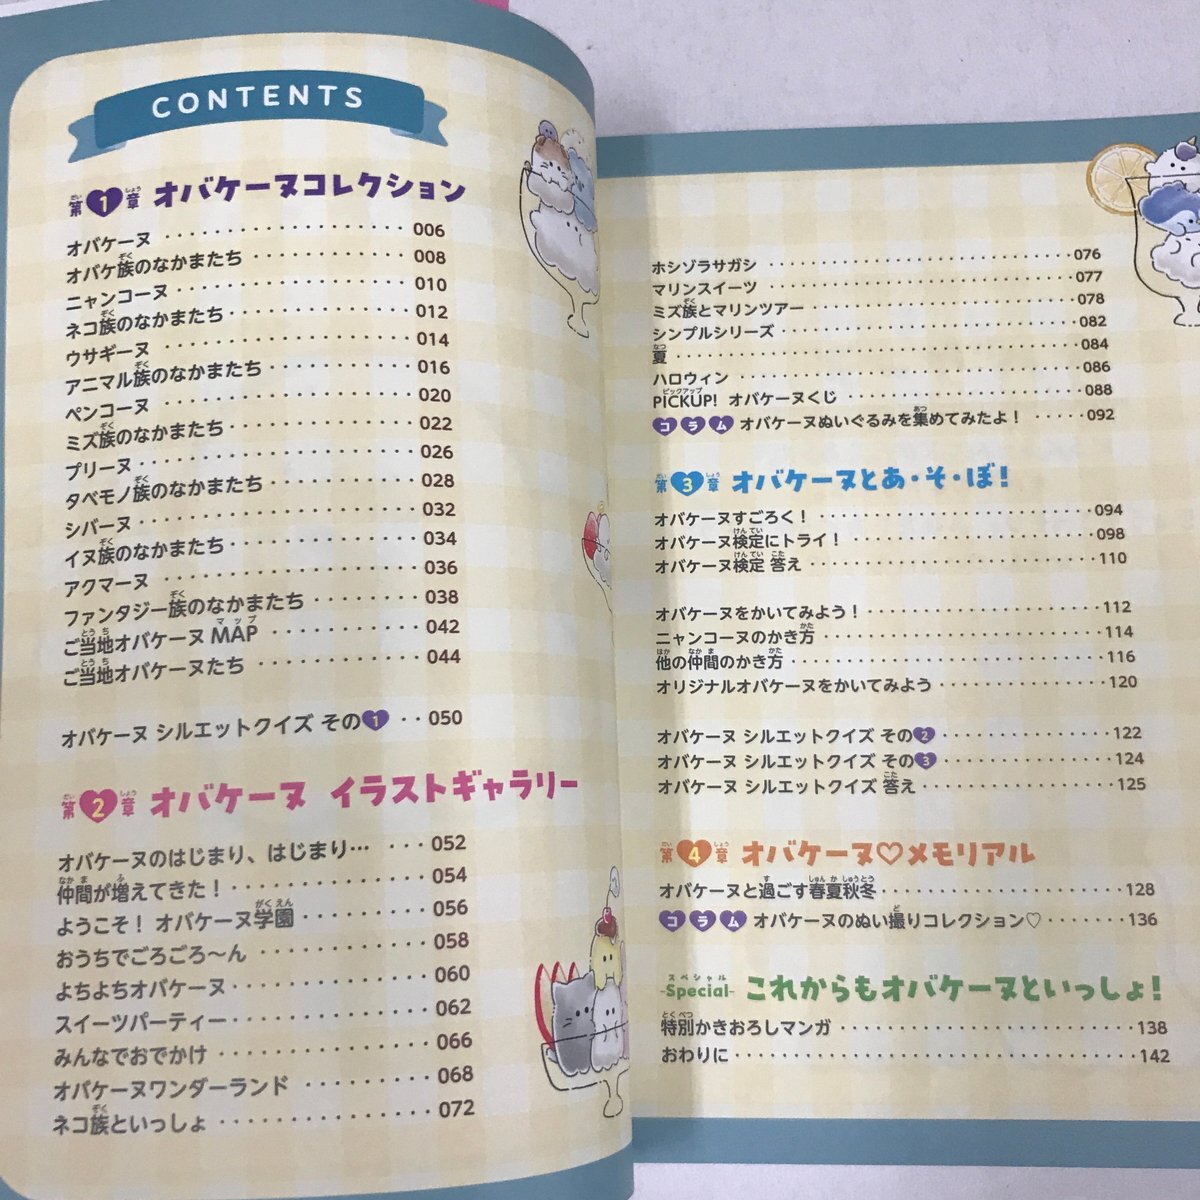 CONTENTS
第1章 オバケーヌコレクション
オバケーヌ 006
オバケ族のなかまたち 008
ニャンコーヌ 010
ネコ族のなかまたち 012
ウサギーヌ 014
アニマル族のなかまたち 016
ペンコーヌ 020
ミズ族のなかまたち 022
プリーヌ 026
タベモノ族のなかまたち 028
シバーヌ 032
イヌ族のなかまたち 034
アクマーヌ 036
ファンタジー族のなかまたち 038
ご当地オバケーヌ MAP 042
ご当地オバケーヌたち 044
オバケーヌ シルエットクイズ その1 050
第2章 オバケーヌ イラストギャラリー
オバケーヌのはじまり、はじまり… 052
仲間が増えてきた! 054
ようこそ! オバケーヌ学園 056
おうちでごろごろ〜ん 058
よちよちオバケーヌ 060
スイーツパーティー 062
みんなでおでかけ 066
オバケーヌワンダーランド 068
ネコ族といっしょ 072
ホシゾラサガシ 076
マリンスイーツ 077
ミズ族とマリンツアー 078
シンプルシリーズ 082
夏 084
ハロウィン 086
PICKUP! オバケーヌくじ 088
コラム オバケーヌぬいぐるみを集めてみたよ! 092
第3章 オバケーヌとあ・そ・ぼ!
オバケーヌすごろく! 094
オバケーヌ検定にトライ! 098
オバケーヌ検定 答え 110
オバケーヌをかいてみよう! 112
ニャンコーヌのかき方 114
他の仲間のかき方 116
オリジナルオバケーヌをかいてみよう 120
オバケーヌ シルエットクイズ その2 122
オバケーヌ シルエットクイズ その3 124
オバケーヌ シルエットクイズ 答え 125
第4章 オバケーヌ♡メモリアル
オバケーヌと過ごす春夏秋冬 128
コラム オバケーヌのぬい撮りコレクション♡ 136
-Special- これからもオバケーヌといっしょ!
特別かきおろしマンガ 138
おわりに 142